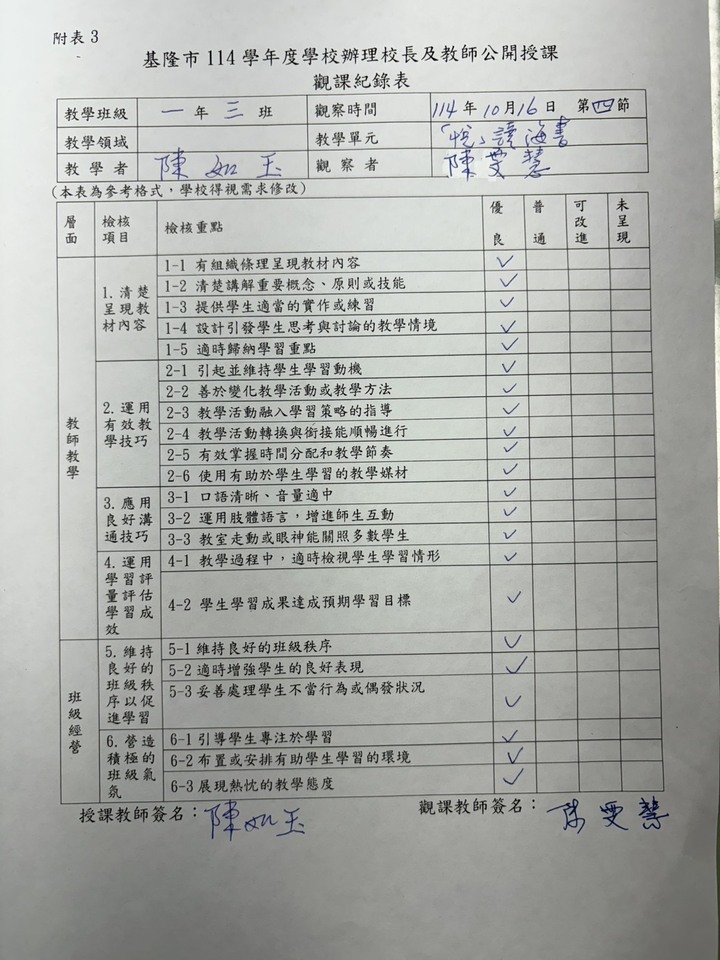 附表 3
基隆市 114 學年度學校辦理校長及教師公開授課
觀課紀錄表
教學班級 一 年 三 班 觀察時間 114 年 10 月 16 日 第四節
教學領域 教學單元 「悅」讀海書
教學者 陳如玉 觀察者 陳雯慧
(本表為參考格式，學校得視需求修改)
層面 檢核項目 檢核重點 優良 普通 可改進 未呈現
教師教學
1. 清楚呈現教材內容
1-1 有組織條理呈現教材內容 ✓
1-2 清楚講解重要概念、原則或技能 ✓
1-3 提供學生適當的實作或練習 ✓
1-4 設計引發學生思考與討論的教學情境 ✓
1-5 適時歸納學習重點 ✓
2. 運用有效教學技巧
2-1 引起並維持學生學習動機 ✓
2-2 善於變化教學活動或教學方法 ✓
2-3 教學活動融入學習策略的指導 ✓
2-4 教學活動轉換與銜接能順暢進行 ✓
2-5 有效掌握時間分配和教學節奏 ✓
2-6 使用有助於學生學習的教學媒材 ✓
3. 應用良好溝通技巧
3-1 口語清晰、音量適中 ✓
3-2 運用肢體語言，增進師生互動 ✓
3-3 教室走動或眼神能關照多數學生 ✓
4. 運用學習評量評估學習成效
4-1 教學過程中，適時檢視學生學習情形 ✓
4-2 學生學習成果達成預期學習目標 ✓
班級經營
5. 維持良好的班級秩序以促進學習
5-1 維持良好的班級秩序 ✓
5-2 適時增強學生的良好表現 ✓
5-3 妥善處理學生不當行為或偶發狀況 ✓
6. 營造積極的班級氣氛
6-1 引導學生專注於學習 ✓
6-2 布置或安排有助學生學習的環境 ✓
6-3 展現熱忱的教學態度 ✓
授課教師簽名：陳如玉 觀課教師簽名：陳雯慧